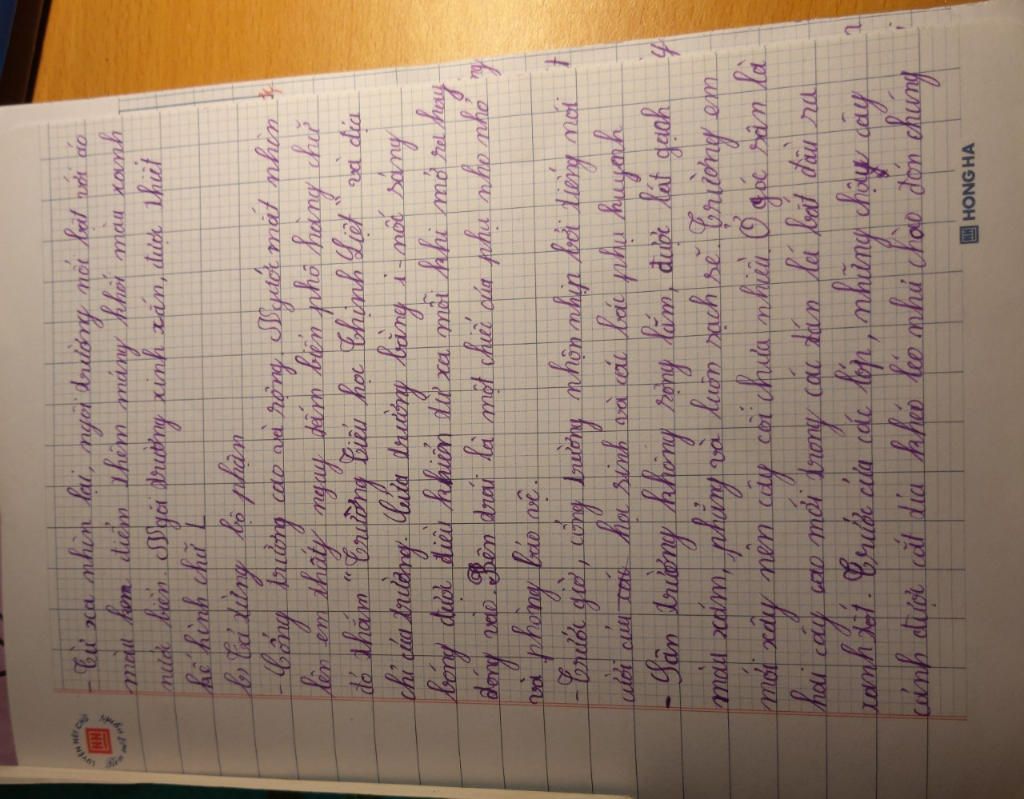 - Từ xa nhìn lại, ngôi trường nổi bật với áo
màu kem điểm thêm mảng khối màu xanh
nước biển. Ngôi trường xinh xắn, được thiết
kế hình chữ L
b) Tả từng bộ phận
- Cổng trường cao và rộng. Ngước mắt nhìn
lên em thấy ngay tấm biển phô hàng chữ
đỏ thắm "Trường tiểu học Thịnh Liệt" và địa
chỉ của trường. Cửa trường bằng i-nốc sáng
bóng được điều khiển từ xa mỗi khi mở ra hay
đóng vào. Bên trái là một chiếc cửa phụ nho nhỏ
và phòng bảo vệ.
- Trước giờ, cổng trường nhộn nhịp bởi tiếng nói
cười của học sinh và các bác phụ huynh
- Sân trường không rộng lắm, được lát gạch
màu xám, phẳng và luôn sạch sẽ. Trường em
mới xây nên cây cối chưa nhiều. Ở góc sân là
hai cây cao mới trong cái tán lá bắt đầu ra
xanh tốt. Trước cửa các lớp, những chậu cây
cảnh được cắt tỉa khéo léo như chào đón chúng
LUYỆN NÉT CHỮ
HONG HA